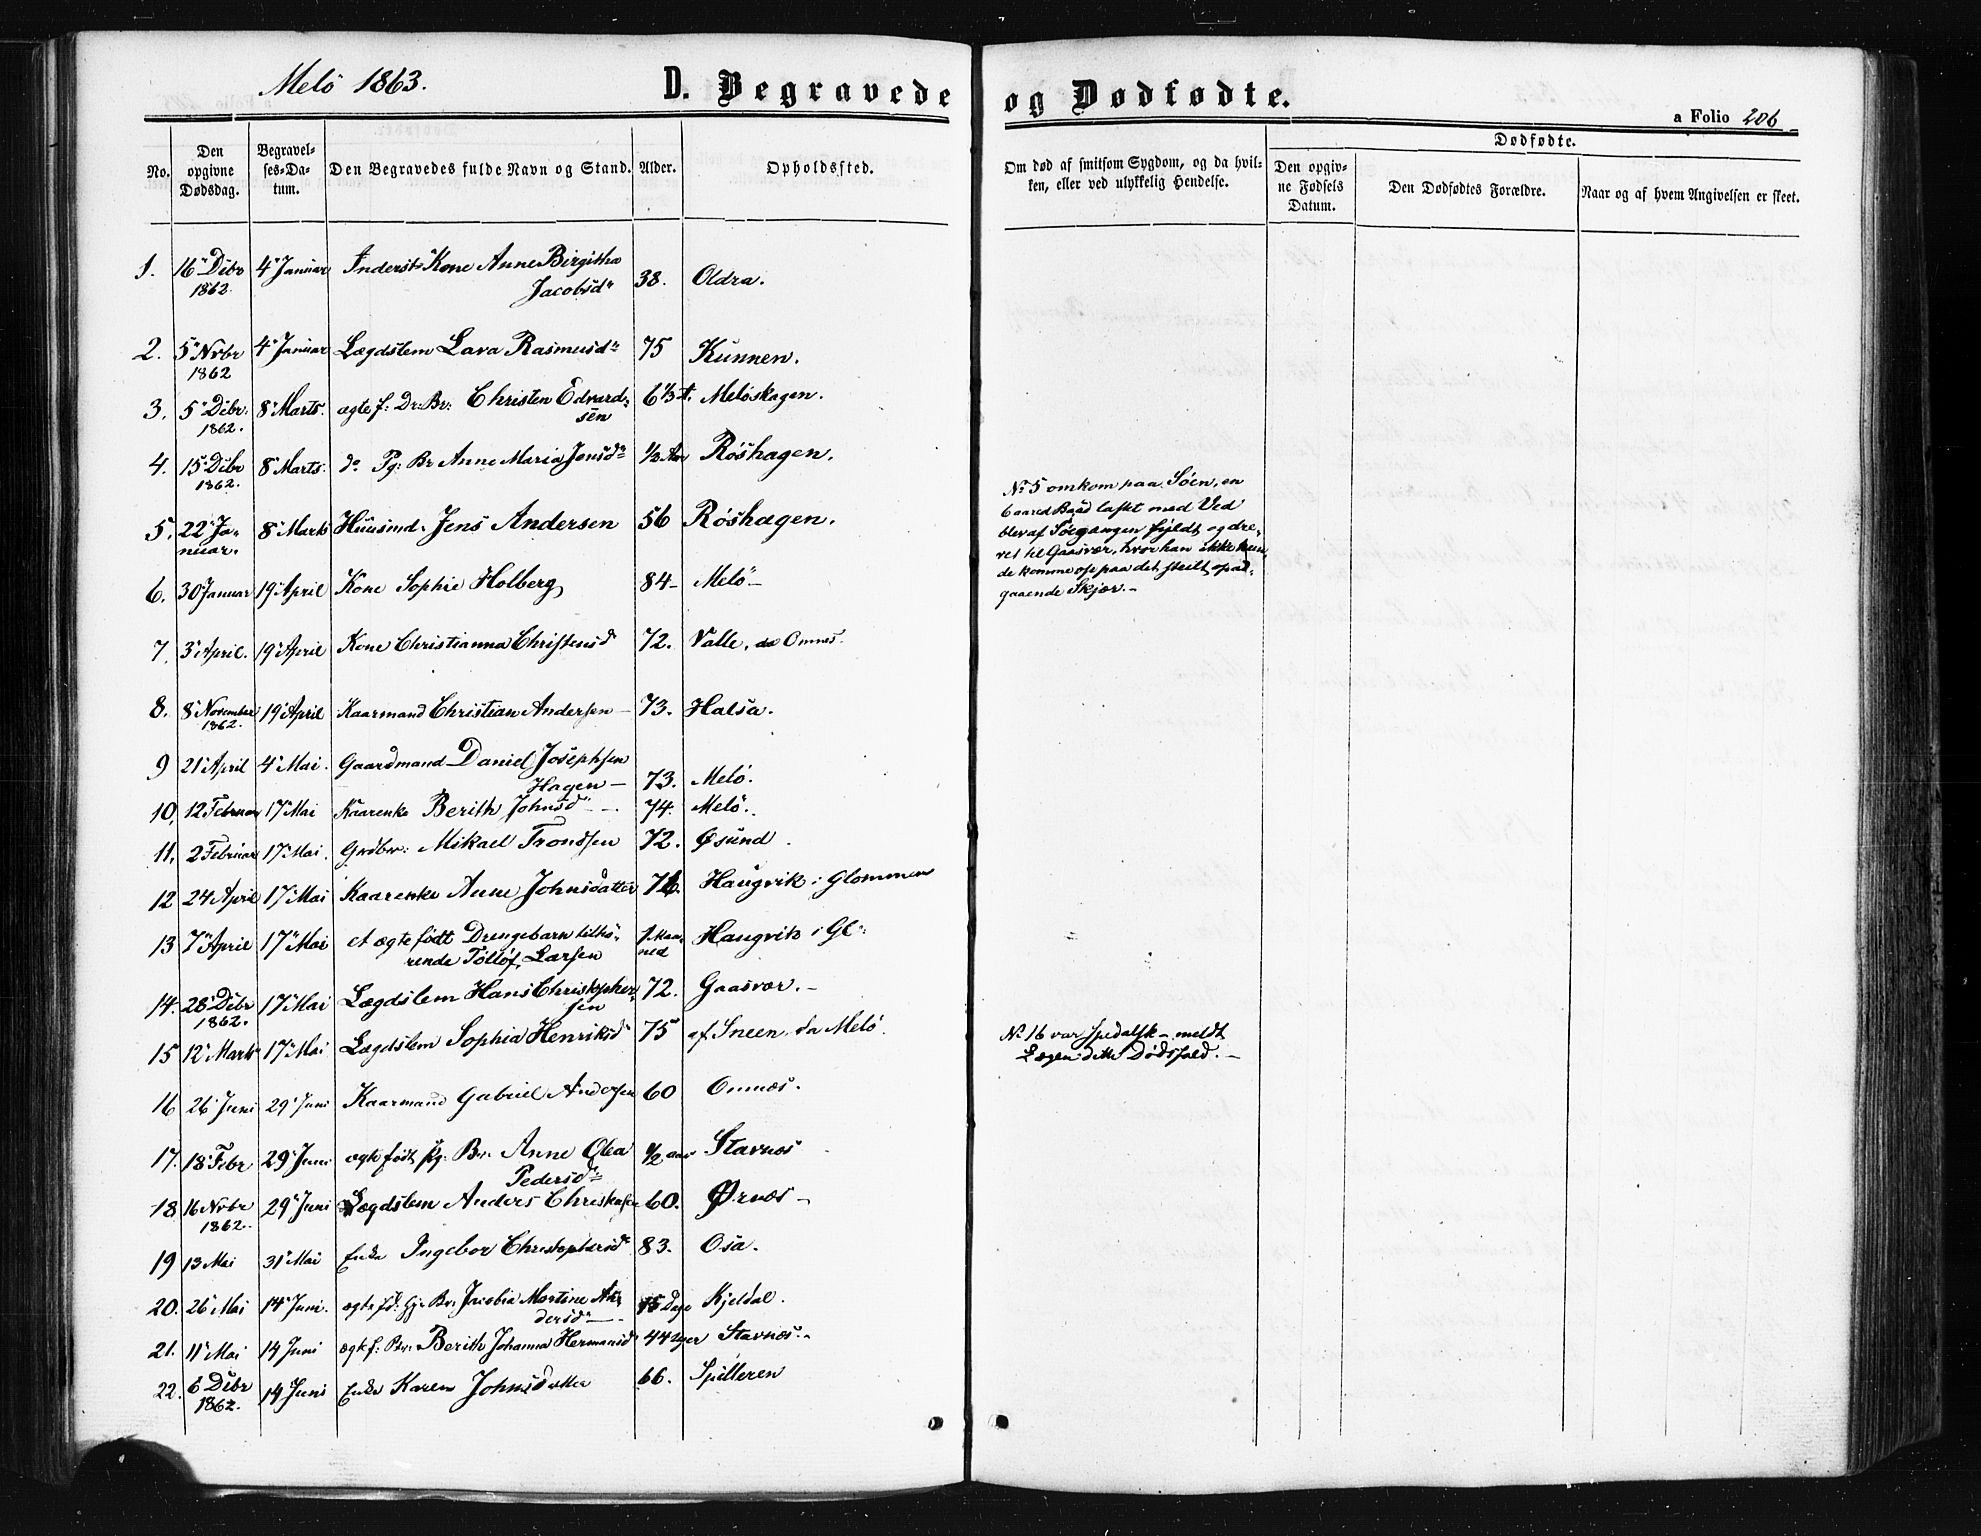 Melö 1863.
D. Begravede og Dødfødte.
a Folio 206
No.
Den opgivne Dødsdag.
Begravelses-Datum.
Den Begravedes fulde Navn og Stand.
Alder.
Opholdssted.
Om død af smitsom Sygdom, og da hvilken, eller ved ulykkelig Hendelse.
Dødfødte.
Den opgivne Fødsels Datum.
Den Dødfødtes Forældre.
Naar og af hvem Angivelsen er skeet.
1. 16 Dcbr 1862 4 Januar Inderst Kone Anne Birgitha Jacobsdr 38. Oldra.
2. 5 Nvbr 1862 4 Januar Lægdslem Lava Rasmusdr 75 Kunnen.
3. 5 Dcbr. 1862. 8 Marts. ægte f: Dr: Br: Christen Edvardsen 6 1/3 A. Melöskagen.
4. 15 Dcbr 1862. 8 Marts. do Pg: Br Anne Maria Jensdr 1/2 Aar Röshagen.
5. 22 Januar. 8 Marts Huusmd. Jens Andersen 56 Röshagen.
6. 30 Januar 19 April Kone Sophie Holberg 84 - Melö -
7. 3 April. 19 April Kone Christianna Christensd 72. Valle, Omnes.
8. 8 November 1862. 19 April Kaarmand Christian Andersen - 73. Halsa.
9 21 April 4 Mai. Gaardmand Daniel Josephsen Hagen - 73. Melö.
10. 12 Februar 17 Mai Kaarenke Berith Johnsd - 74. Melö.
11. 2 Februar 17 Mai. Grdbr: Mikael Trondsen 72. Øsund.
12 24 April 17 Mai Kaarenke Anne Johnsdatter Haugvik i Glommen
13 7 April 17 Mai et ægte født Drengebarn tilhörende Tollöf Larsen 1 Maaned Haugvik i Gl:
14. 28 Dcbr 1862. 17 Mai Lægdslem Hans Christophersen 72. Gaasvær. -
15 12 Marts 17 Mai Lægdslem Sophia Henriksd 75 af Sneen, Melö.
16 26 Juni 29 Juni Kaarmand Gabriel Andersen 60 Omnæs.
17. 18 Febr 29 Juni ægte født pg: Br. Anne Olea Pedersdr 1/2 aar Stavnæs
18 16 Nvbr 1862. 29 Juni Lægdslem Anders Christensen 60. Ørnæs -
19 13 Mai 31 Mai Enke Ingebor Christophersd 83. Osa.
20. 26 Mai 14 Juni. ægte fd: pg: Br. Jacobia Martine Andersdr - 15 Dage Kjeldal.
21. 11 Mai 14 Juni ægte f: Br: Berith Johanna Hermansd 4 Uger Stavnæs. -
22. 6 Dcbr 1862. 14 Juni Enke Karen Johnsdatter 66. Spilleren
No 5 omkom paa Söen, en
6aared Baad lastet med Ved
blev af Söegangen fyldt og dre-
vet til Gaasvær, hvor han ikke kun-
de komme op paa det steilt opad-
gaaende Skjær. -
No 16 var spedalsk - meldt
Lægen dette Dødsfald. -